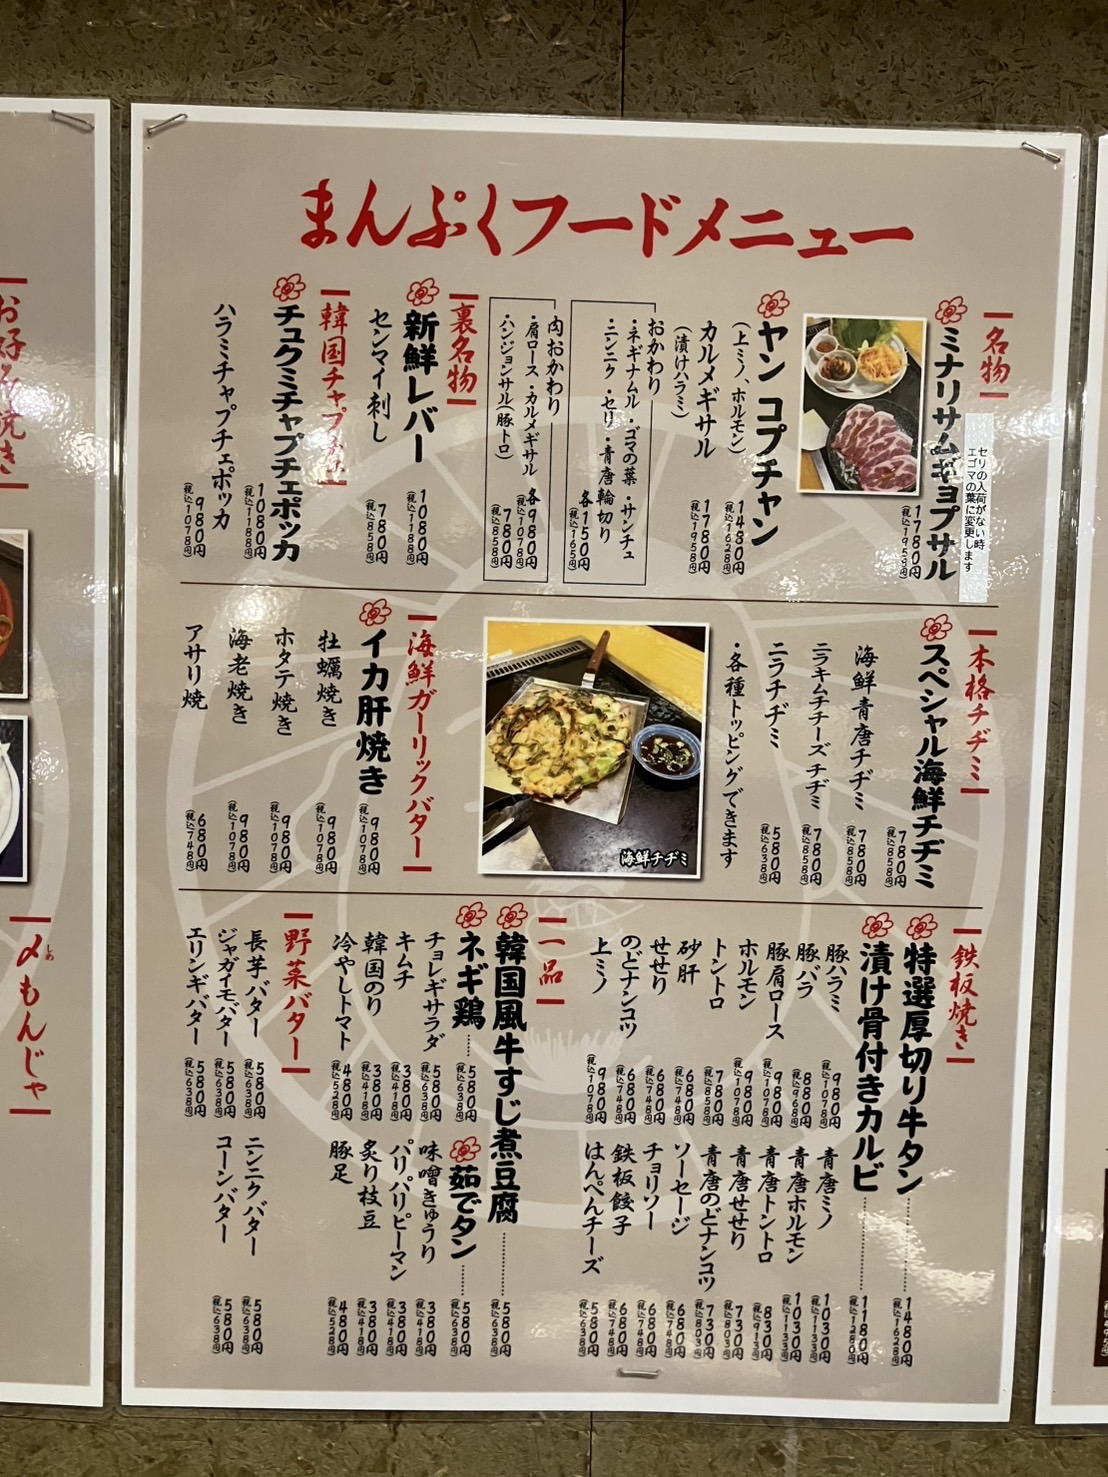 まんぷくフードメニュー
名物
ミナリサムギョプサル
1780円
(税込1958円)
セリの入荷がない時
エゴマの葉に変更します
ヤンコプチャン
(上ミノ、ホルモン)
1480円
(税込1628円)
カルメギサル
(漬けハラミ)
1780円
(税込1958円)
おかわり
・ネギナムル・ゴマの葉・サンチュ
・ニンニク・セリ・青唐輪切り
各150円
(税込165円)
肉おかわり
・肩ロース・カルメギサル 各980円
(税込1078円)
・ハンジョンサル(豚トロ) 780円
(税込858円)
裏名物
新鮮レバー
1080円
(税込1188円)
センマイ刺し
780円
(税込858円)
韓国チャプ
チュクミチャプチェポッカ
1080円
(税込1188円)
ハラミチャプチェポッカ
980円
(税込1078円)
本格チヂミ
スペシャル海鮮チヂミ
780円
(税込858円)
海鮮青唐チヂミ
780円
(税込858円)
ニラキムチチーズチヂミ
780円
(税込858円)
ニラチヂミ
580円
(税込638円)
・各種トッピングできます
海鮮チヂミ
海鮮ガーリックバター
イカ肝焼き
980円
(税込1078円)
牡蠣焼き
980円
(税込1078円)
ホタテ焼き
980円
(税込1078円)
海老焼き
980円
(税込1078円)
アサリ焼
680円
(税込748円)
鉄板焼き
特選厚切り牛タン
1480円
(税込1628円)
漬け骨付きカルビ
1180円
(税込1280円)
豚ハラミ
980円
(税込1078円)
豚バラ
880円
(税込968円)
豚肩ロース
980円
(税込1078円)
ホルモン
980円
(税込1078円)
トントロ
780円
(税込858円)
砂肝
680円
(税込748円)
せせり
680円
(税込748円)
のどナンコツ
680円
(税込748円)
上ミノ
980円
(税込1078円)
青唐ミノ
1030円
(税込1133円)
青唐ホルモン
1030円
(税込1133円)
青唐トントロ
830円
(税込913円)
青唐せせり
730円
(税込803円)
青唐のどナンコツ
730円
(税込803円)
ソーセージ
680円
(税込748円)
チョリソー
680円
(税込748円)
鉄板餃子
680円
(税込748円)
はんぺんチーズ
580円
(税込638円)
一品
韓国風牛すじ煮豆腐
580円
(税込638円)
ネギ鶏
580円
(税込638円)
茹でタン
580円
(税込638円)
チョレギサラダ
580円
(税込638円)
キムチ
380円
(税込418円)
韓国のり
380円
(税込418円)
冷やしトマト
480円
(税込528円)
味噌きゅうり
380円
(税込418円)
パリパリピーマン
380円
(税込418円)
炙り枝豆
380円
(税込418円)
豚足
480円
(税込528円)
野菜バター
長芋バター
580円
(税込638円)
ジャガイモバター
580円
(税込638円)
エリンギバター
580円
(税込638円)
ニンニクバター
580円
(税込638円)
コーンバター
580円
(税込638円)
お好み焼き
〆もんじゃ
しめ